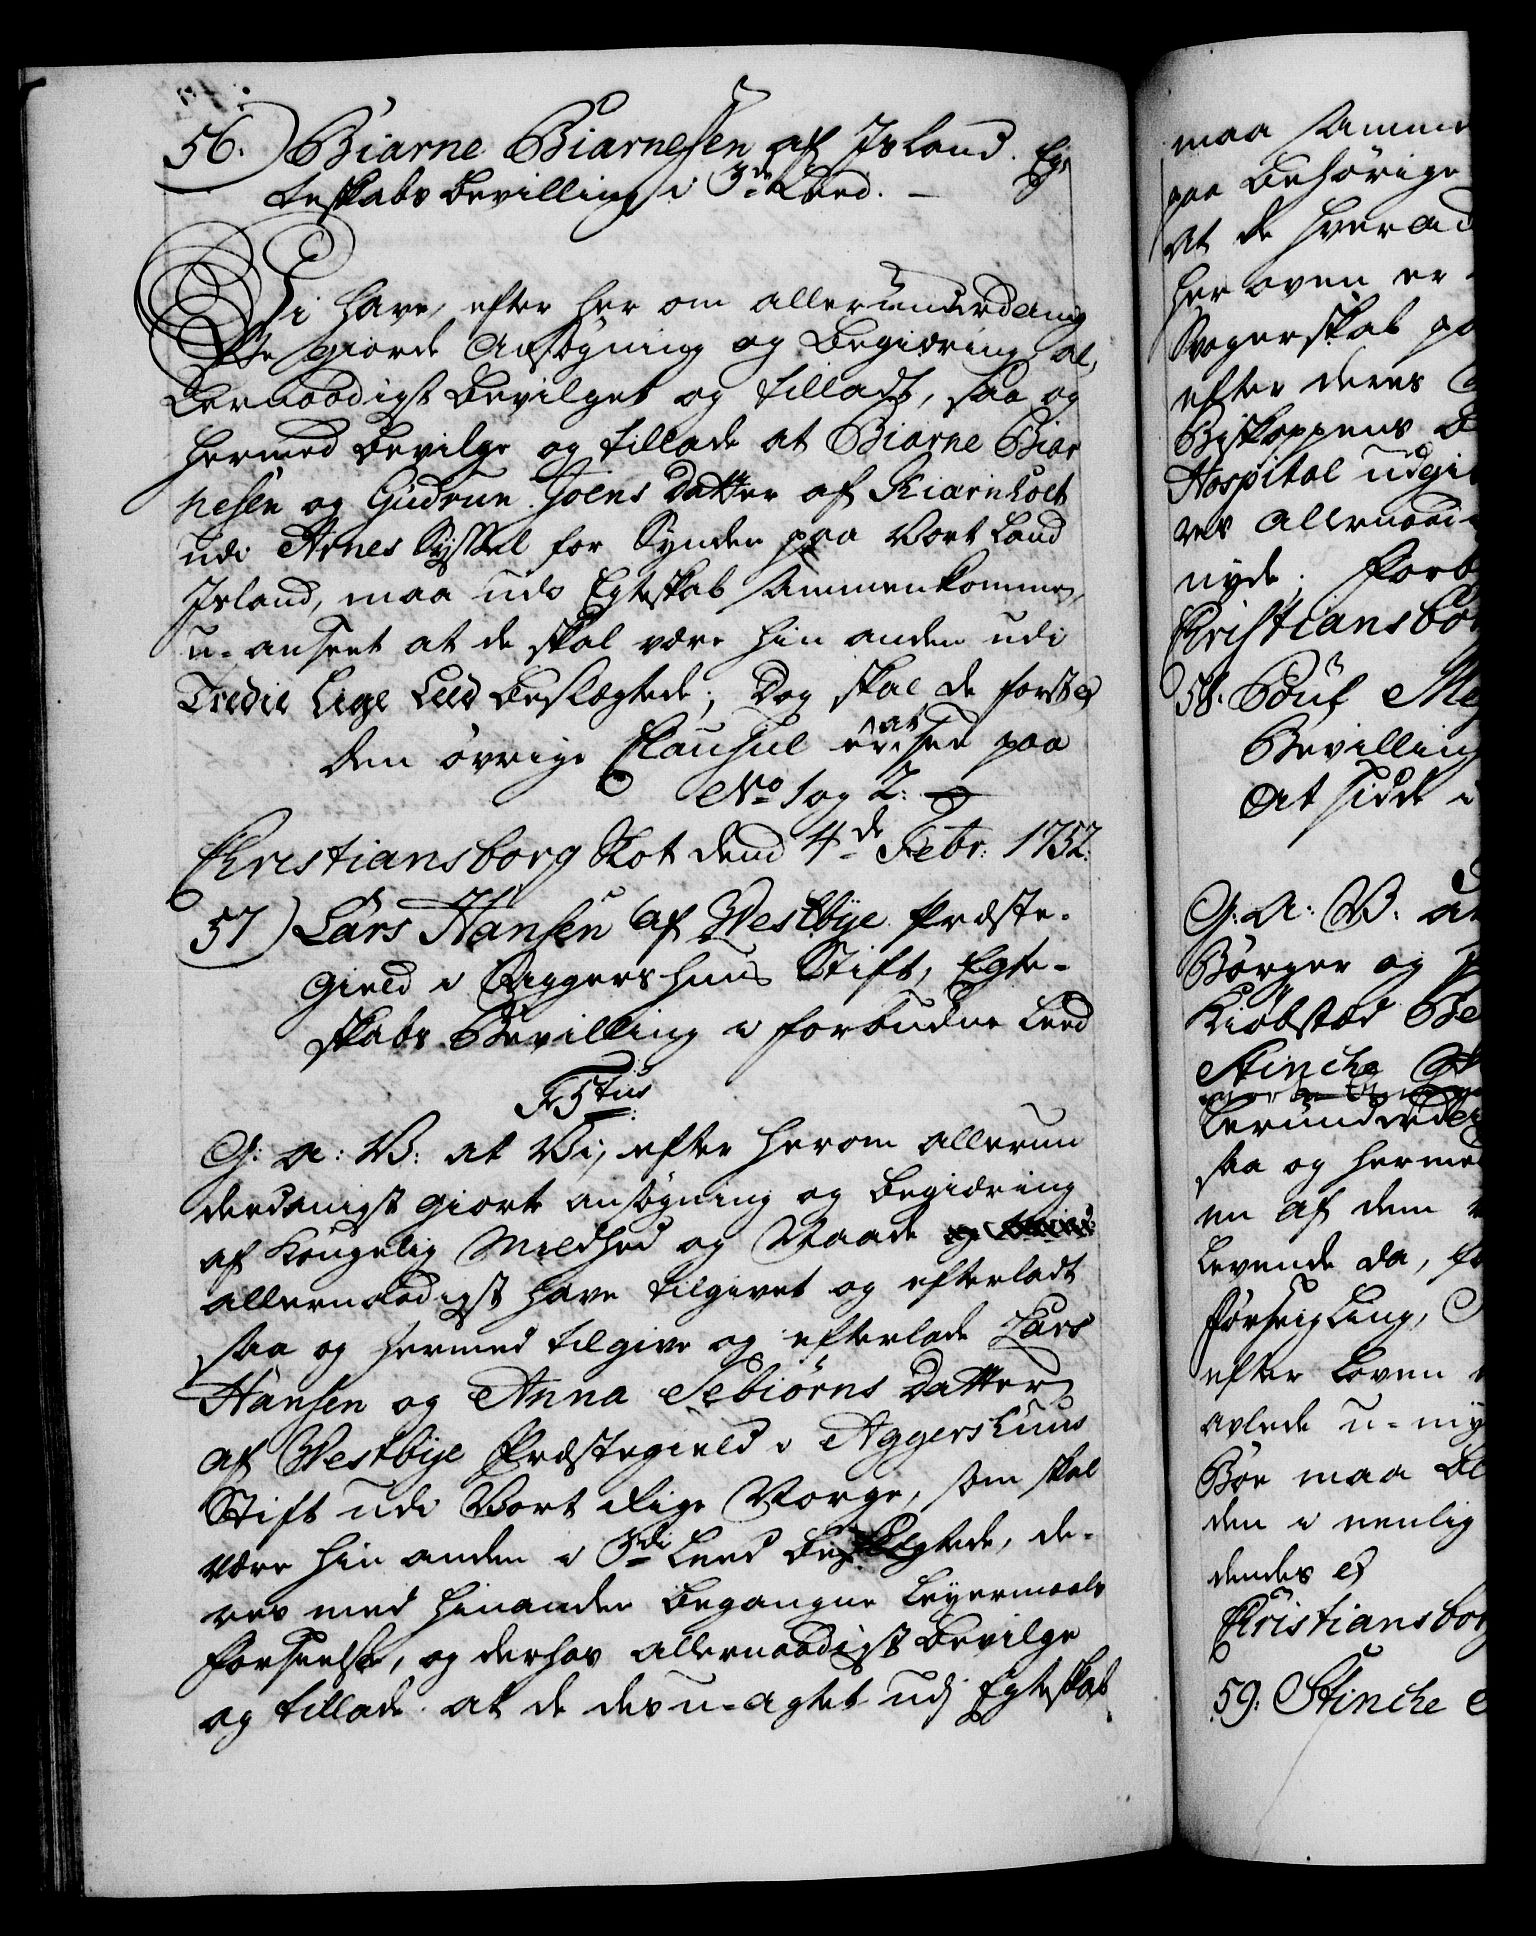 56.) Biarne Biarnesen af Island. Eg-
teskabs Bevilling i 3de Leed. –
Vi have, efter her om allerunderdanig
ste giorde Ansøgning og Begiæring al-
lernaadigst bevilget og tilladt, saa og
hermed bevilge og tillade at Biarne Biar
nesen og Gudrun Joens Datter af Kiarnholt
udi Arnes Syssel for Synden paa Vort Land
Island, maa udi Egteskab sammenkomme,
u-anseet at de skal være hin anden udi
Tredie Lige Leed beslægtede; Dog skal de først &
den øvrige Clausul at see paa
No 1 og 2:
Christiansborg Slot dend 4de Febr: 1752.
57) Lars Hansen af Westbye Præste-
gield i Aggershuus Stift, Egte-
skabs Bevilling i forbudne Leed
F 5tus
G: A: V: at Vi, efter herom allerun
derdanigst giort ansøgning og begiæring
af Kongelig Mildhed og Naade
allernaadigst have tilgivet og efterladt
saa og hermed tilgive og efterlade Lars
Hansen og Anna Sebiørns Datter
af Westbye Præstegield i Aggershuus
Stift udi Vort Rige Norge, som skal
være hin anden i 3die Leed beslægtede, de-
res med hinanden begangne Leyermaals
Forseelse, og derhos allernaadigst bevilge
og tillade at de des u-agtet udj Egteskab
maa samme
paa behørige
at de hver
her oven er
Svogerskab
efter deres
Biskoppens
Hospital udgi
res allernaadi
nyde. Forb
Christiansbor
58. Poul
Bevilling
At sidde i
G: A: V:
Borger og
Kiøbstad Be
Stinche
lerunderda
saa og herme
en af dem
levende da, fo
Forseigling,
efter Loven
avlede u-my
Bør maa
den i venlig
dendes &
Christiansborg
59: Stinche